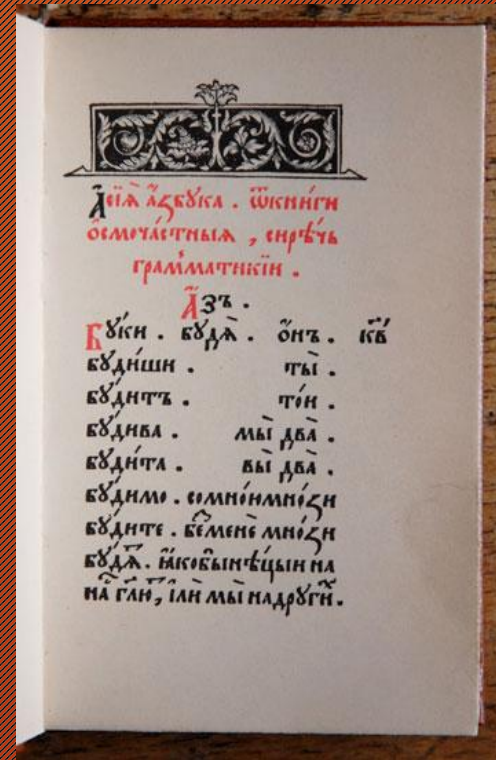 А҆сїѧ̀ а҆́ꙁбꙋка . ѿкни́ги
ѻ҆смоча́стныѧ , сирѣ́чь
грам̾матикїи .
А҆́зъ .
Бꙋ́ки . бꙋдѧ̀ . ѻ҆́нъ . к҃в
бꙋди́ши . ты̀ .
бꙋ́дитъ . то́и .
бꙋ́дива . мы̀ два̀ .
бꙋди́та . вы̀ два̀ .
бꙋ́димо . сомно́имно́ꙁи
бꙋ́дите . бе́менѐ мно́ꙁи
бꙋ́дѧ . ꙗ҆́кобынѣ́цыи на
на̀ гл҃ю , і҆лѝ мы̀ надрꙋги́х .